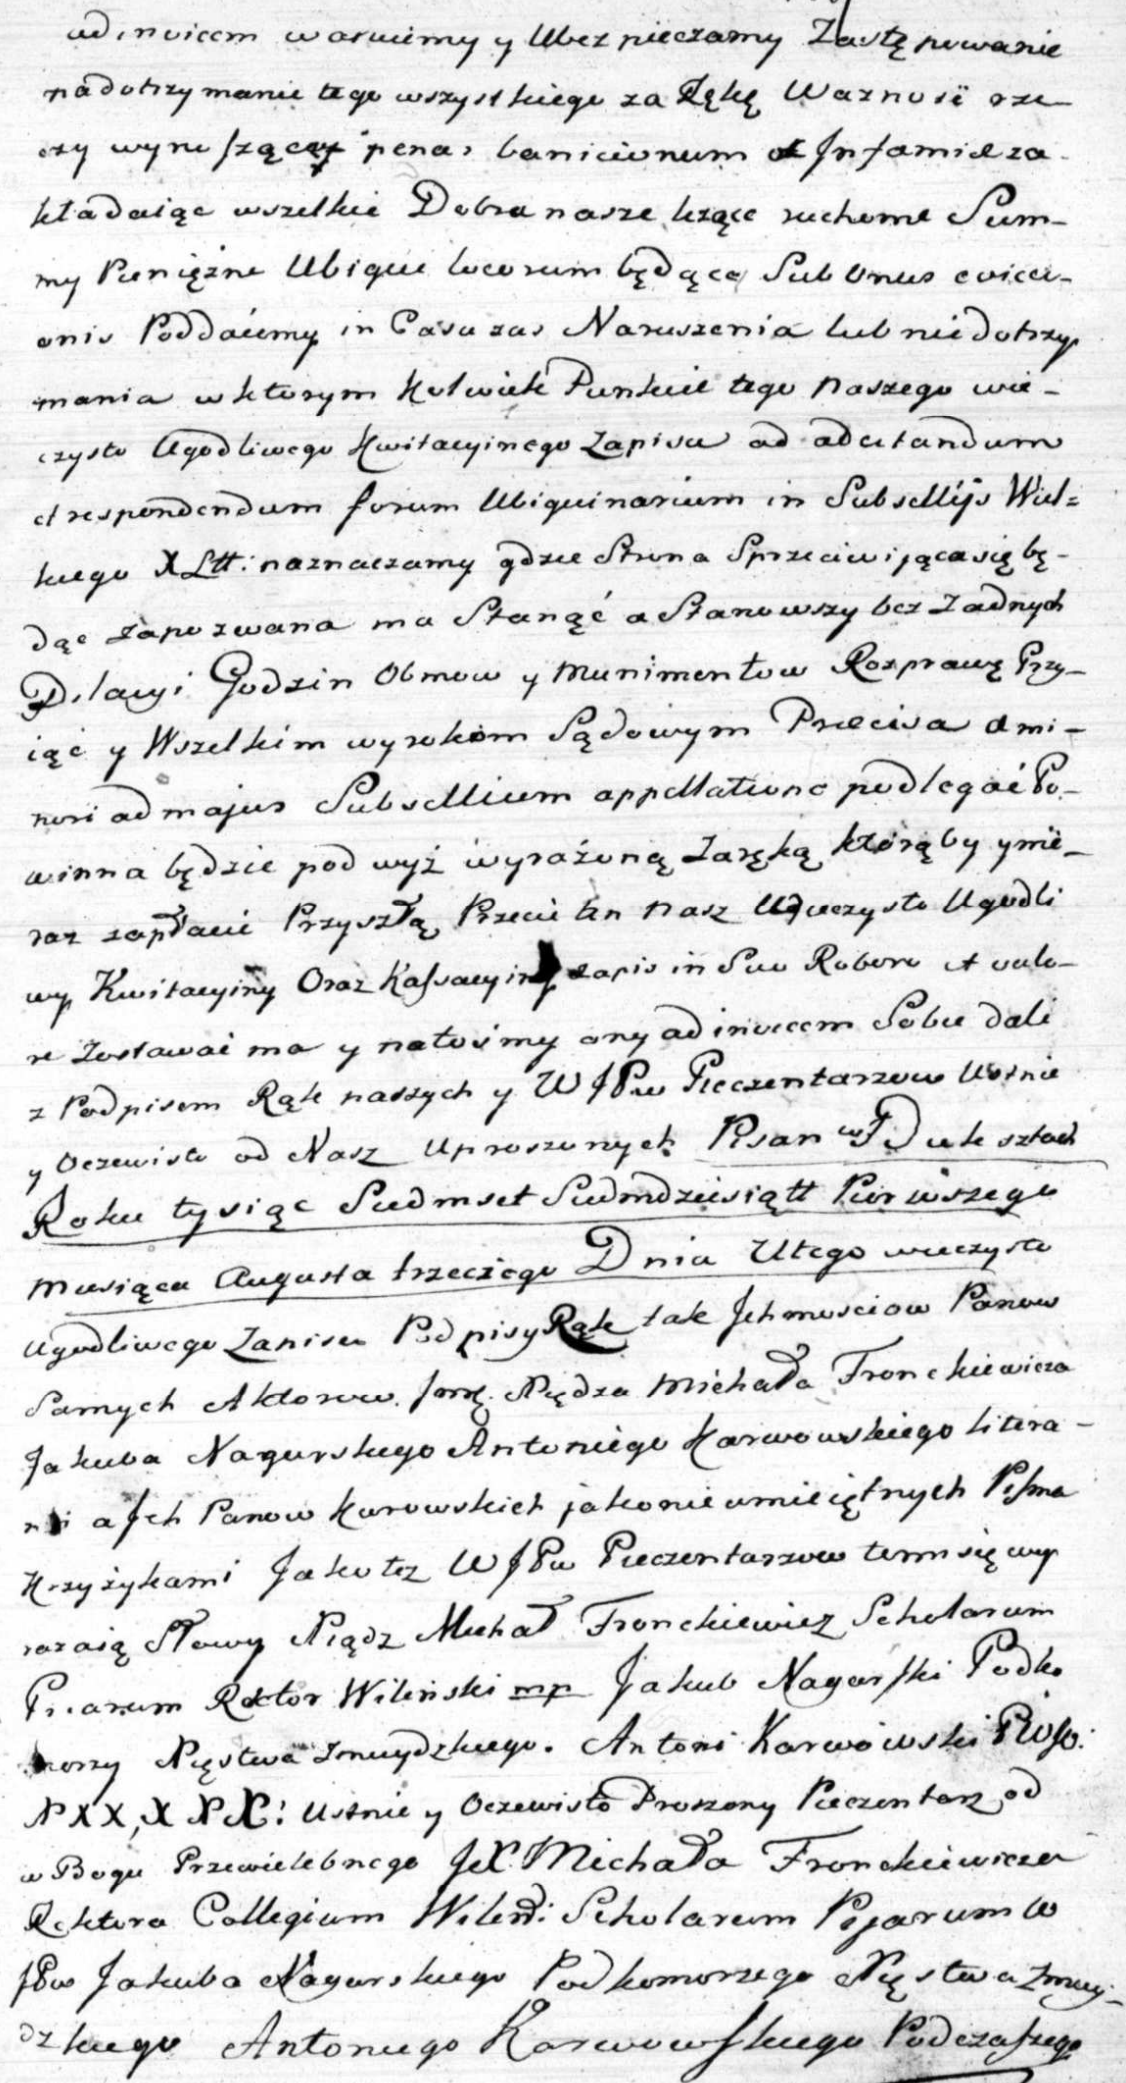 ad invicem waruiemy y Ubezpieczamy Zastępowanie
na dotrzymanie tego wszystkiego za Rękę Waznosi rze-
czy wynoszącey pena, banicionum et Infamie za-
kładaiąc wszelkie Dobra nasze leżące ruchome Sum-
my Pieniężne Ubique locorum będące Sub onus evicti-
onis Poddaiemy in Casu zas Naruszenia lub niedotrzy
mania w ktorym kolwiek Punkcie tego naszego wie-
czysto Ugodliwego Kwitacyinego Zapisu ad adcitandum
et respondendum forum Ubiquinarium in Subsellijs Wiel=
kiego X Litt: naznaczamy gdzie Strona Sprzeciwijąca się bę-
dąc zapozwana ma Stanąć a Stanowszy bez Zadnych
Dylacyi Godzin Obmow y Munimentow Rozprawę Przy-
iąć y Wszelkim wyrokom Sądowym Precisa a mi-
nori ad majus Subsellium appellatione podlegać Po-
winna będzie pod wyż wyrażoną Zaręką którąby y nie-
raz zapłacić Przyszłą Przecie ten nasz Wieczysto Ugodli
wy Kwitacyiny Oraz Kassacyiny zapis in Suo Robore et valo-
re Zostawać ma y na tośmy ony ad invicem Sobie dali
z Podpisem Rąk naszych y W JPw Pieczentarzow Ustnie
y Oczewisto od Nasz Uproszonych Pisan w Duksztach
Roku tysiąc Siedmset Siedmdziesiątt Pierwszego
Miesiąca Augusta trzeciego Dnia U tego wieczysto
Ugodliwego Zapisu Podpisy Rąk tak Jchmosciow Panow
Samych Aktorow. Jmć. Xiędza Michała Fronckiewicza
Jakuba Nagurskiego Antoniego Karwowskiego litera-
mi a Jch Panow Kurowskich jako nieumieiętnych Pisma
Krzyżykami Jako tez W JPw Pieczentarzow temi się wy
razaią Słowy Xiądz Michał Fronckiewicz Scholarum
Piarum Rektor Wileński mp Jakub Nagurski Podko
morzy Xięstwa Zmuydzkiego. Antoni Karwowski PWo.
N X X, X N X: Ustnie y Oczewisto Proszony Pieczentarz od
w Bogu Przewielebnego JeX Michała Fronckiewicza
Rektora Collegium Wileń: Scholarum Pijarum W
JPw Jakuba Nagurskiego Podkomorzego Xięstwa Zmuy-
dzkiego Antoniego Karwowskiego Podczaszego